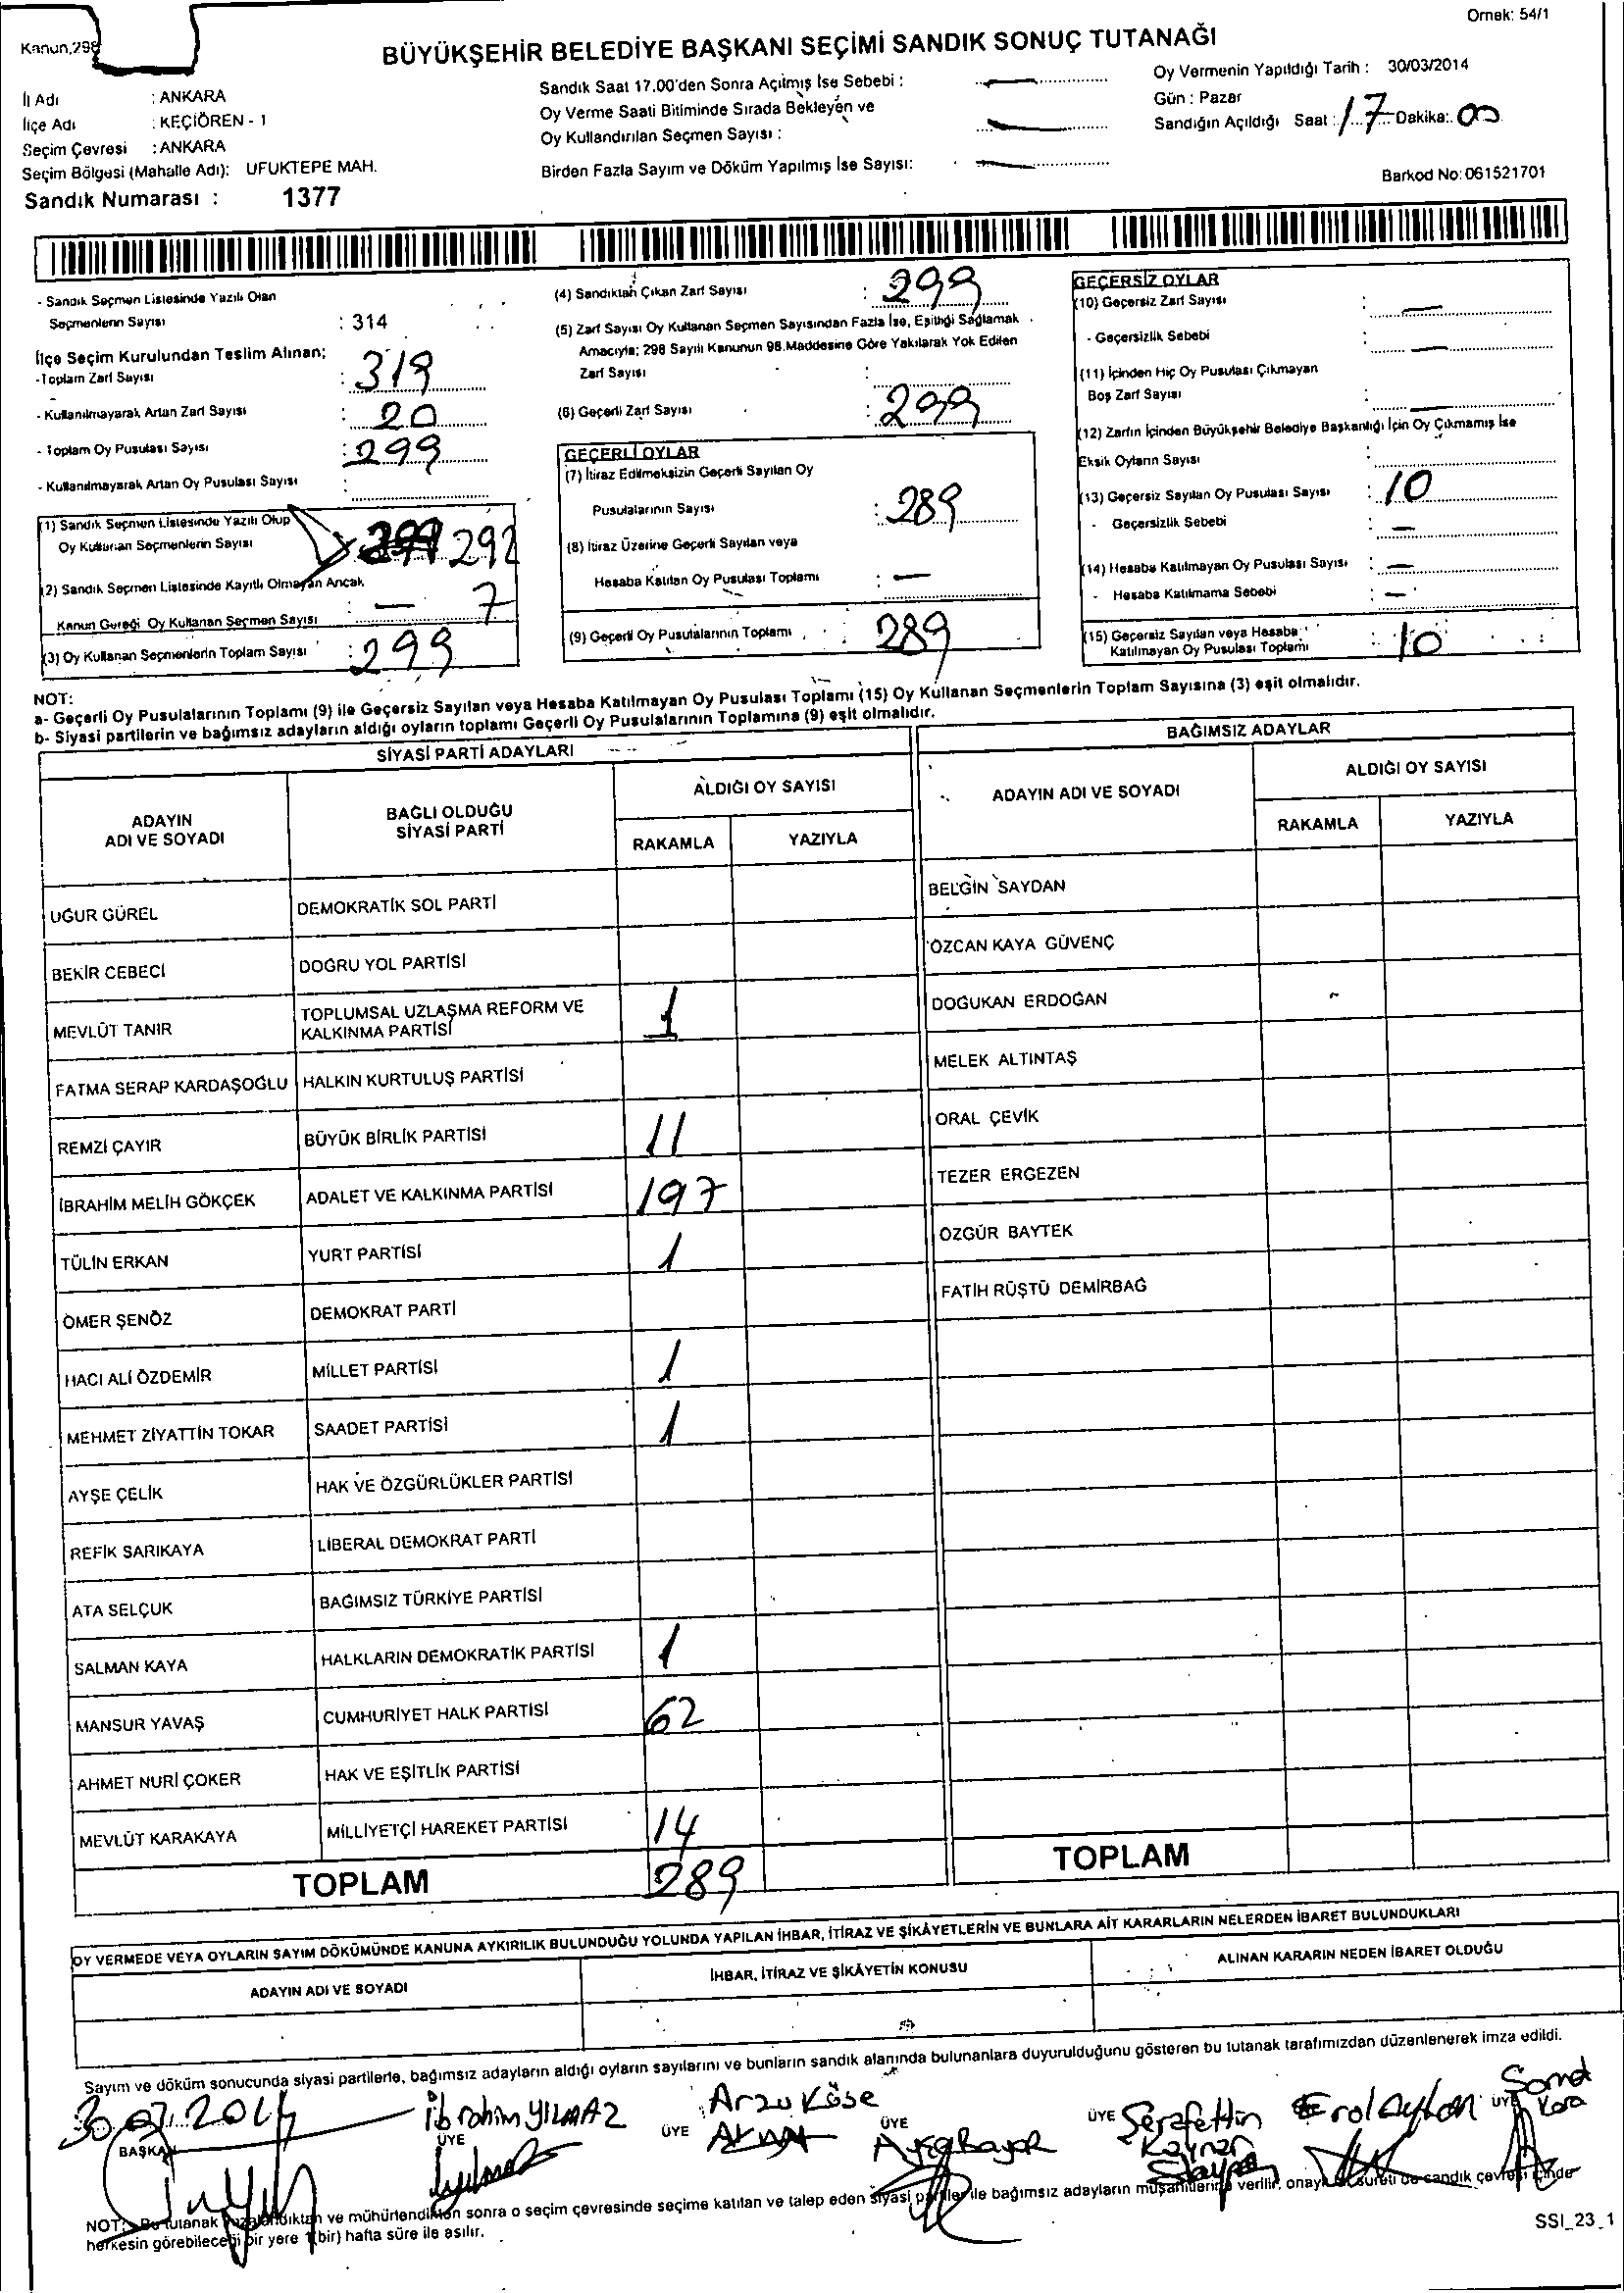 Örnek: 54/1
Kanun,298
BÜYÜKŞEHİR BELEDİYE BAŞKANI SEÇİMİ SANDIK SONUÇ TUTANAĞI
İl Adı : ANKARA
İlçe Adı : KEÇİÖREN - 1
Seçim Çevresi : ANKARA
Seçim Bölgesi (Mahalle Adı): UFUKTEPE MAH.
Sandık Numarası : 1377
Sandık Saat 17.00'den Sonra Açılmış İse Sebebi : —
Oy Verme Saati Bitiminde Sırada Bekleyen ve
Oy Kullandırılan Seçmen Sayısı : —
Birden Fazla Sayım ve Döküm Yapılmış İse Sayısı: —
Oy Vermenin Yapıldığı Tarih : 30/03/2014
Gün : Pazar
Sandığın Açıldığı Saat : 17 Dakika: 00
Barkod No: 061521701
- Sandık Seçmen Listesinde Yazılı Olan
Seçmenlerin Sayısı : 314
İlçe Seçim Kurulundan Teslim Alınan;
-Toplam Zarf Sayısı : 319
- Kullanılmayarak Artan Zarf Sayısı : 20
- Toplam Oy Pusulası Sayısı : 299
- Kullanılmayarak Artan Oy Pusulası Sayısı :
(1) Sandık Seçmen Listesinde Yazılı Olup
Oy Kullanan Seçmenlerin Sayısı 299 292
(2) Sandık Seçmen Listesinde Kayıtlı Olmayan Ancak
Kanun Gereği Oy Kullanan Seçmen Sayısı : — 7
(3) Oy Kullanan Seçmenlerin Toplam Sayısı : 299
(4) Sandıktan Çıkan Zarf Sayısı : 299
(5) Zarf Sayısı Oy Kullanan Seçmen Sayısından Fazla İse, Eşitliği Sağlamak
Amacıyla; 298 Sayılı Kanunun 98.Maddesine Göre Yakılarak Yok Edilen
Zarf Sayısı :
(6) Geçerli Zarf Sayısı : 299
GEÇERLİ OYLAR
(7) İtiraz Edilmeksizin Geçerli Sayılan Oy
Pusulalarının Sayısı : 289
(8) İtiraz Üzerine Geçerli Sayılan veya
Hesaba Katılan Oy Pusulası Toplamı : —
(9) Geçerli Oy Pusulalarının Toplamı : 289
GEÇERSİZ OYLAR
(10) Geçersiz Zarf Sayısı : —
- Geçersizlik Sebebi : —
(11) İçinden Hiç Oy Pusulası Çıkmayan
Boş Zarf Sayısı : —
(12) Zarfın İçinden Büyükşehir Belediye Başkanlığı İçin Oy Çıkmamış İse
Eksik Oyların Sayısı :
(13) Geçersiz Sayılan Oy Pusulası Sayısı : 10
- Geçersizlik Sebebi : —
(14) Hesaba Katılmayan Oy Pusulası Sayısı : —
- Hesaba Katılmama Sebebi : —
(15) Geçersiz Sayılan veya Hesaba
Katılmayan Oy Pusulası Toplamı : 10
NOT:
a- Geçerli Oy Pusulalarının Toplamı (9) ile Geçersiz Sayılan veya Hesaba Katılmayan Oy Pusulası Toplamı (15) Oy Kullanan Seçmenlerin Toplam Sayısına (3) eşit olmalıdır.
b- Siyasi partilerin ve bağımsız adayların aldığı oyların toplamı Geçerli Oy Pusulalarının Toplamına (9) eşit olmalıdır.
SİYASİ PARTİ ADAYLARI
ADAYIN ADI VE SOYADI
BAĞLI OLDUĞU SİYASİ PARTİ
ALDIĞI OY SAYISI
RAKAMLA YAZIYLA
UĞUR GÜREL DEMOKRATİK SOL PARTİ
BEKİR CEBECİ DOĞRU YOL PARTİSİ
MEVLÜT TANIR TOPLUMSAL UZLAŞMA REFORM VE KALKINMA PARTİSİ 1
FATMA SERAP KARDAŞOĞLU HALKIN KURTULUŞ PARTİSİ
REMZİ ÇAYIR BÜYÜK BİRLİK PARTİSİ 11
İBRAHİM MELİH GÖKÇEK ADALET VE KALKINMA PARTİSİ 197
TÜLİN ERKAN YURT PARTİSİ 1
ÖMER ŞENÖZ DEMOKRAT PARTİ
HACI ALİ ÖZDEMİR MİLLET PARTİSİ 1
MEHMET ZİYATTİN TOKAR SAADET PARTİSİ 1
AYŞE ÇELİK HAK VE ÖZGÜRLÜKLER PARTİSİ
REFİK SARIKAYA LİBERAL DEMOKRAT PARTİ
ATA SELÇUK BAĞIMSIZ TÜRKİYE PARTİSİ
SALMAN KAYA HALKLARIN DEMOKRATİK PARTİSİ 1
MANSUR YAVAŞ CUMHURİYET HALK PARTİSİ 62
AHMET NURİ ÇOKER HAK VE EŞİTLİK PARTİSİ
MEVLÜT KARAKAYA MİLLİYETÇİ HAREKET PARTİSİ 14
TOPLAM 289
BAĞIMSIZ ADAYLAR
ADAYIN ADI VE SOYADI
ALDIĞI OY SAYISI
RAKAMLA YAZIYLA
BELGİN SAYDAN
ÖZCAN KAYA GÜVENÇ
DOĞUKAN ERDOĞAN
MELEK ALTINTAŞ
ORAL ÇEVİK
TEZER ERGEZEN
ÖZGÜR BAYTEK
FATİH RÜŞTÜ DEMİRBAĞ
TOPLAM
OY VERMEDE VEYA OYLARIN SAYIM DÖKÜMÜNDE KANUNA AYKIRILIK BULUNDUĞU YOLUNDA YAPILAN İHBAR, İTİRAZ VE ŞİKÂYETLERİN VE BUNLARA AİT KARARLARIN NELERDEN İBARET BULUNDUKLARI
ADAYIN ADI VE SOYADI
İHBAR, İTİRAZ VE ŞİKÂYETİN KONUSU
ALINAN KARARIN NEDEN İBARET OLDUĞU
Sayım ve döküm sonucunda siyasi partilerle, bağımsız adayların aldığı oyların sayılarını ve bunların sandık alanında bulunanlara duyurulduğunu gösteren bu tutanak tarafımızdan düzenlenerek imza edildi.
30.03.2014 İbrahim YILMAZ Arzu Köse Şerafettin Kaynar Erol Ayhan
BAŞKAN ÜYE ÜYE ÜYE ÜYE ÜYE
NOT: Bu tutanak imzalandıktan ve mühürlendikten sonra o seçim çevresinde seçime katılan ve talep eden siyasi partiler ile bağımsız adayların müşahitlerine verilir, onaylı bir sureti de sandık çevresi içinde
herkesin görebileceği bir yere 1 (bir) hafta süre ile asılır.
SSI_23_1